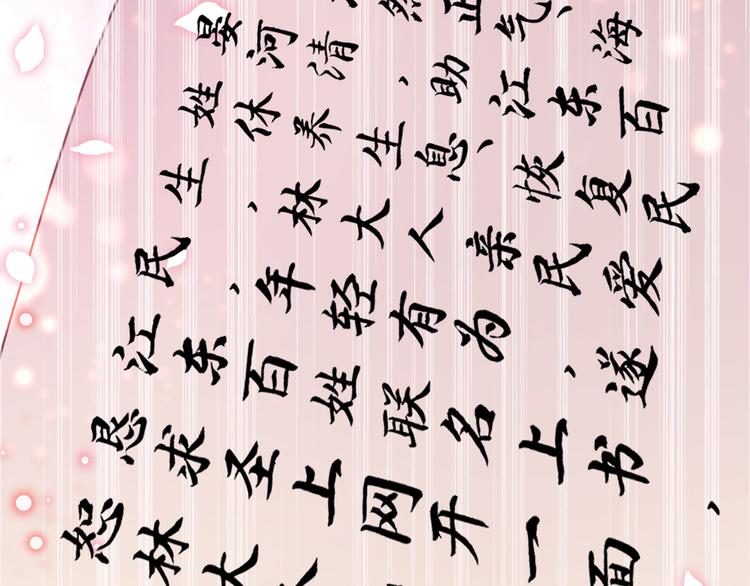 然正气、海
晏河清，助江东百
姓休养生息、恢复民
生，林大人亲民爱
民，年轻有为，遂
江东百姓联名上书，
恳求圣上网开一面
恕林大